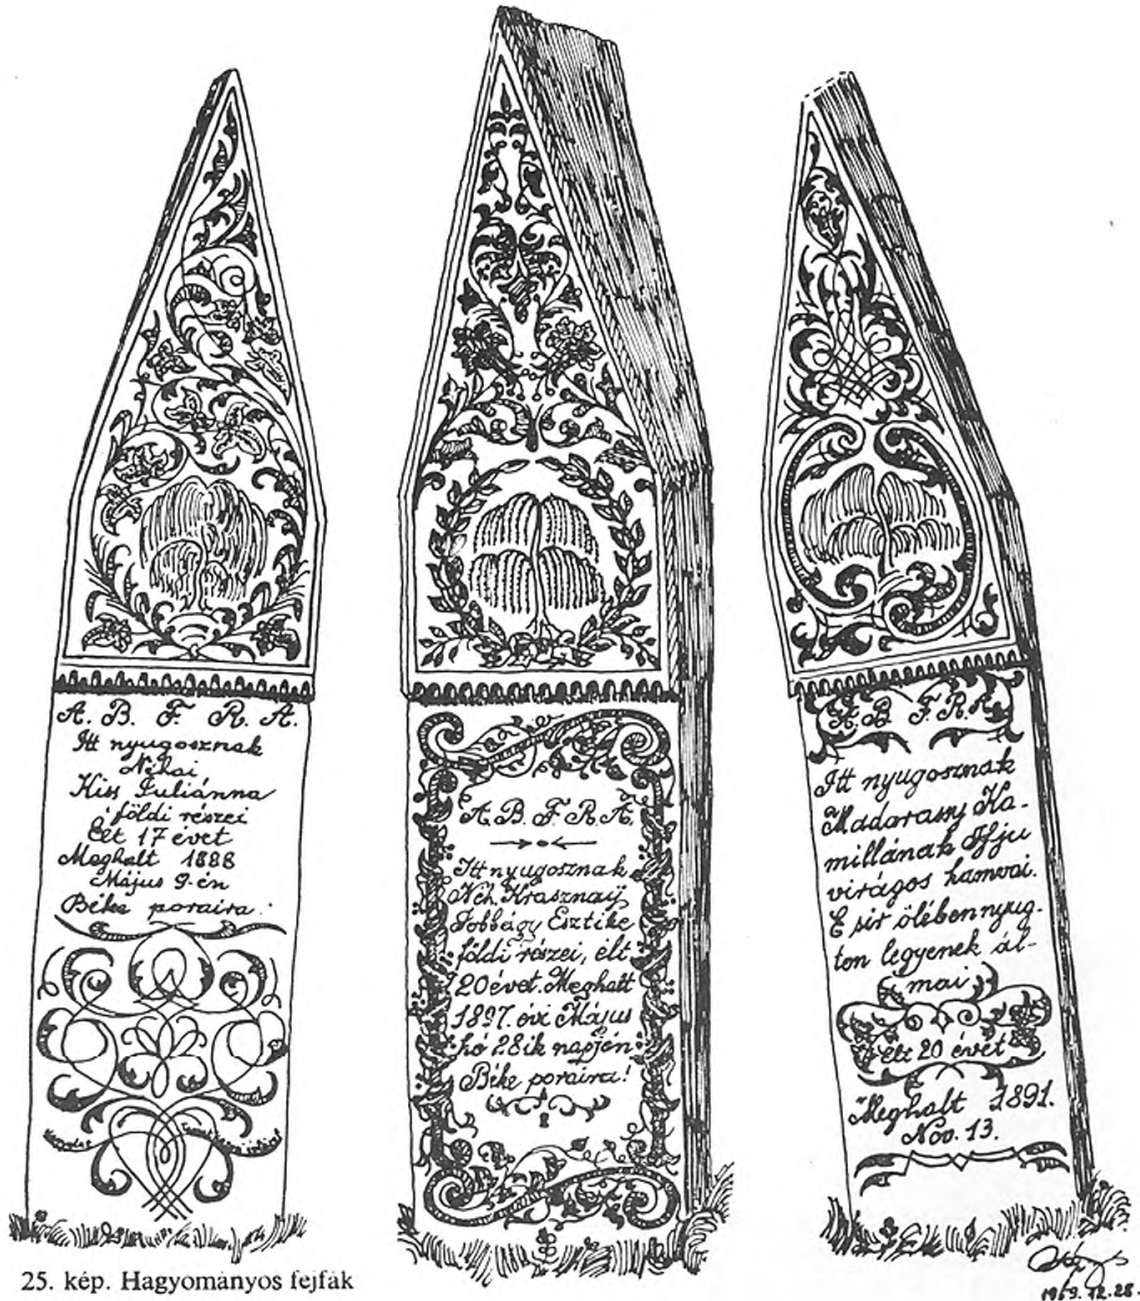 A. B. F. R. A.
Itt nyugosznak
Néhai
Kiss Juliánna
földi részei
Élt 17 évet
Meghalt 1888
Május 9-én
Béke poraira.
A. B. F. R. A.
Itt nyugosznak
Néh. Krasznaÿ
Jobbágy Esztike
földi részei, élt
20 évet. Meghalt
1897. évi Május
hó 28ik napján
Béke poraira!
A. B. F. R. A.
Itt nyugosznak
Madarassy Ka-
millának Ifju
virágos hamvai.
E sir ölében nyug-
ton legyenek ál-
mai
élt 20 évet
Meghalt 1891.
Nov. 13.
25. kép. Hagyományos fejfák
12.28.